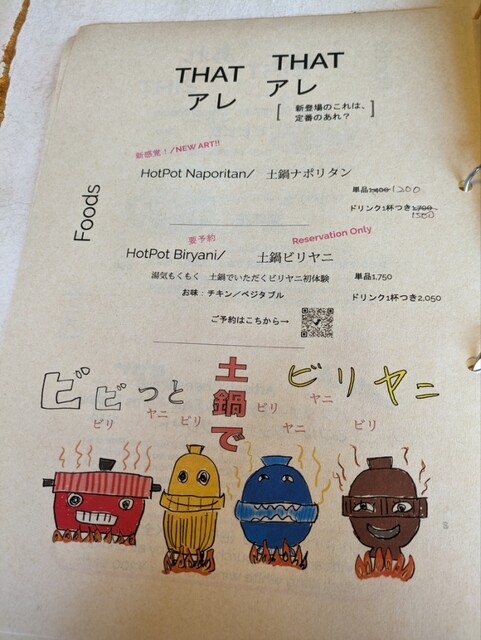 THAT THAT
アレ アレ
[ 新登場のこれは、
定番のあれ？ ]
Foods
新感覚！/NEW ART!!
HotPot Naporitan/ 土鍋ナポリタン
単品1,400 1200
ドリンク1杯つき1,700
1500
要予約 Reservation Only
HotPot Biryani/ 土鍋ビリヤニ
湯気もくもく 土鍋でいただくビリヤニ初体験 単品1,750
お味：チキン／ベジタブル ドリンク1杯つき2,050
ご予約はこちから→
ビビっと 土鍋で ビリヤニ
ビリ ヤニ ビリ ビリ ヤニ ヤニ ビリ
8